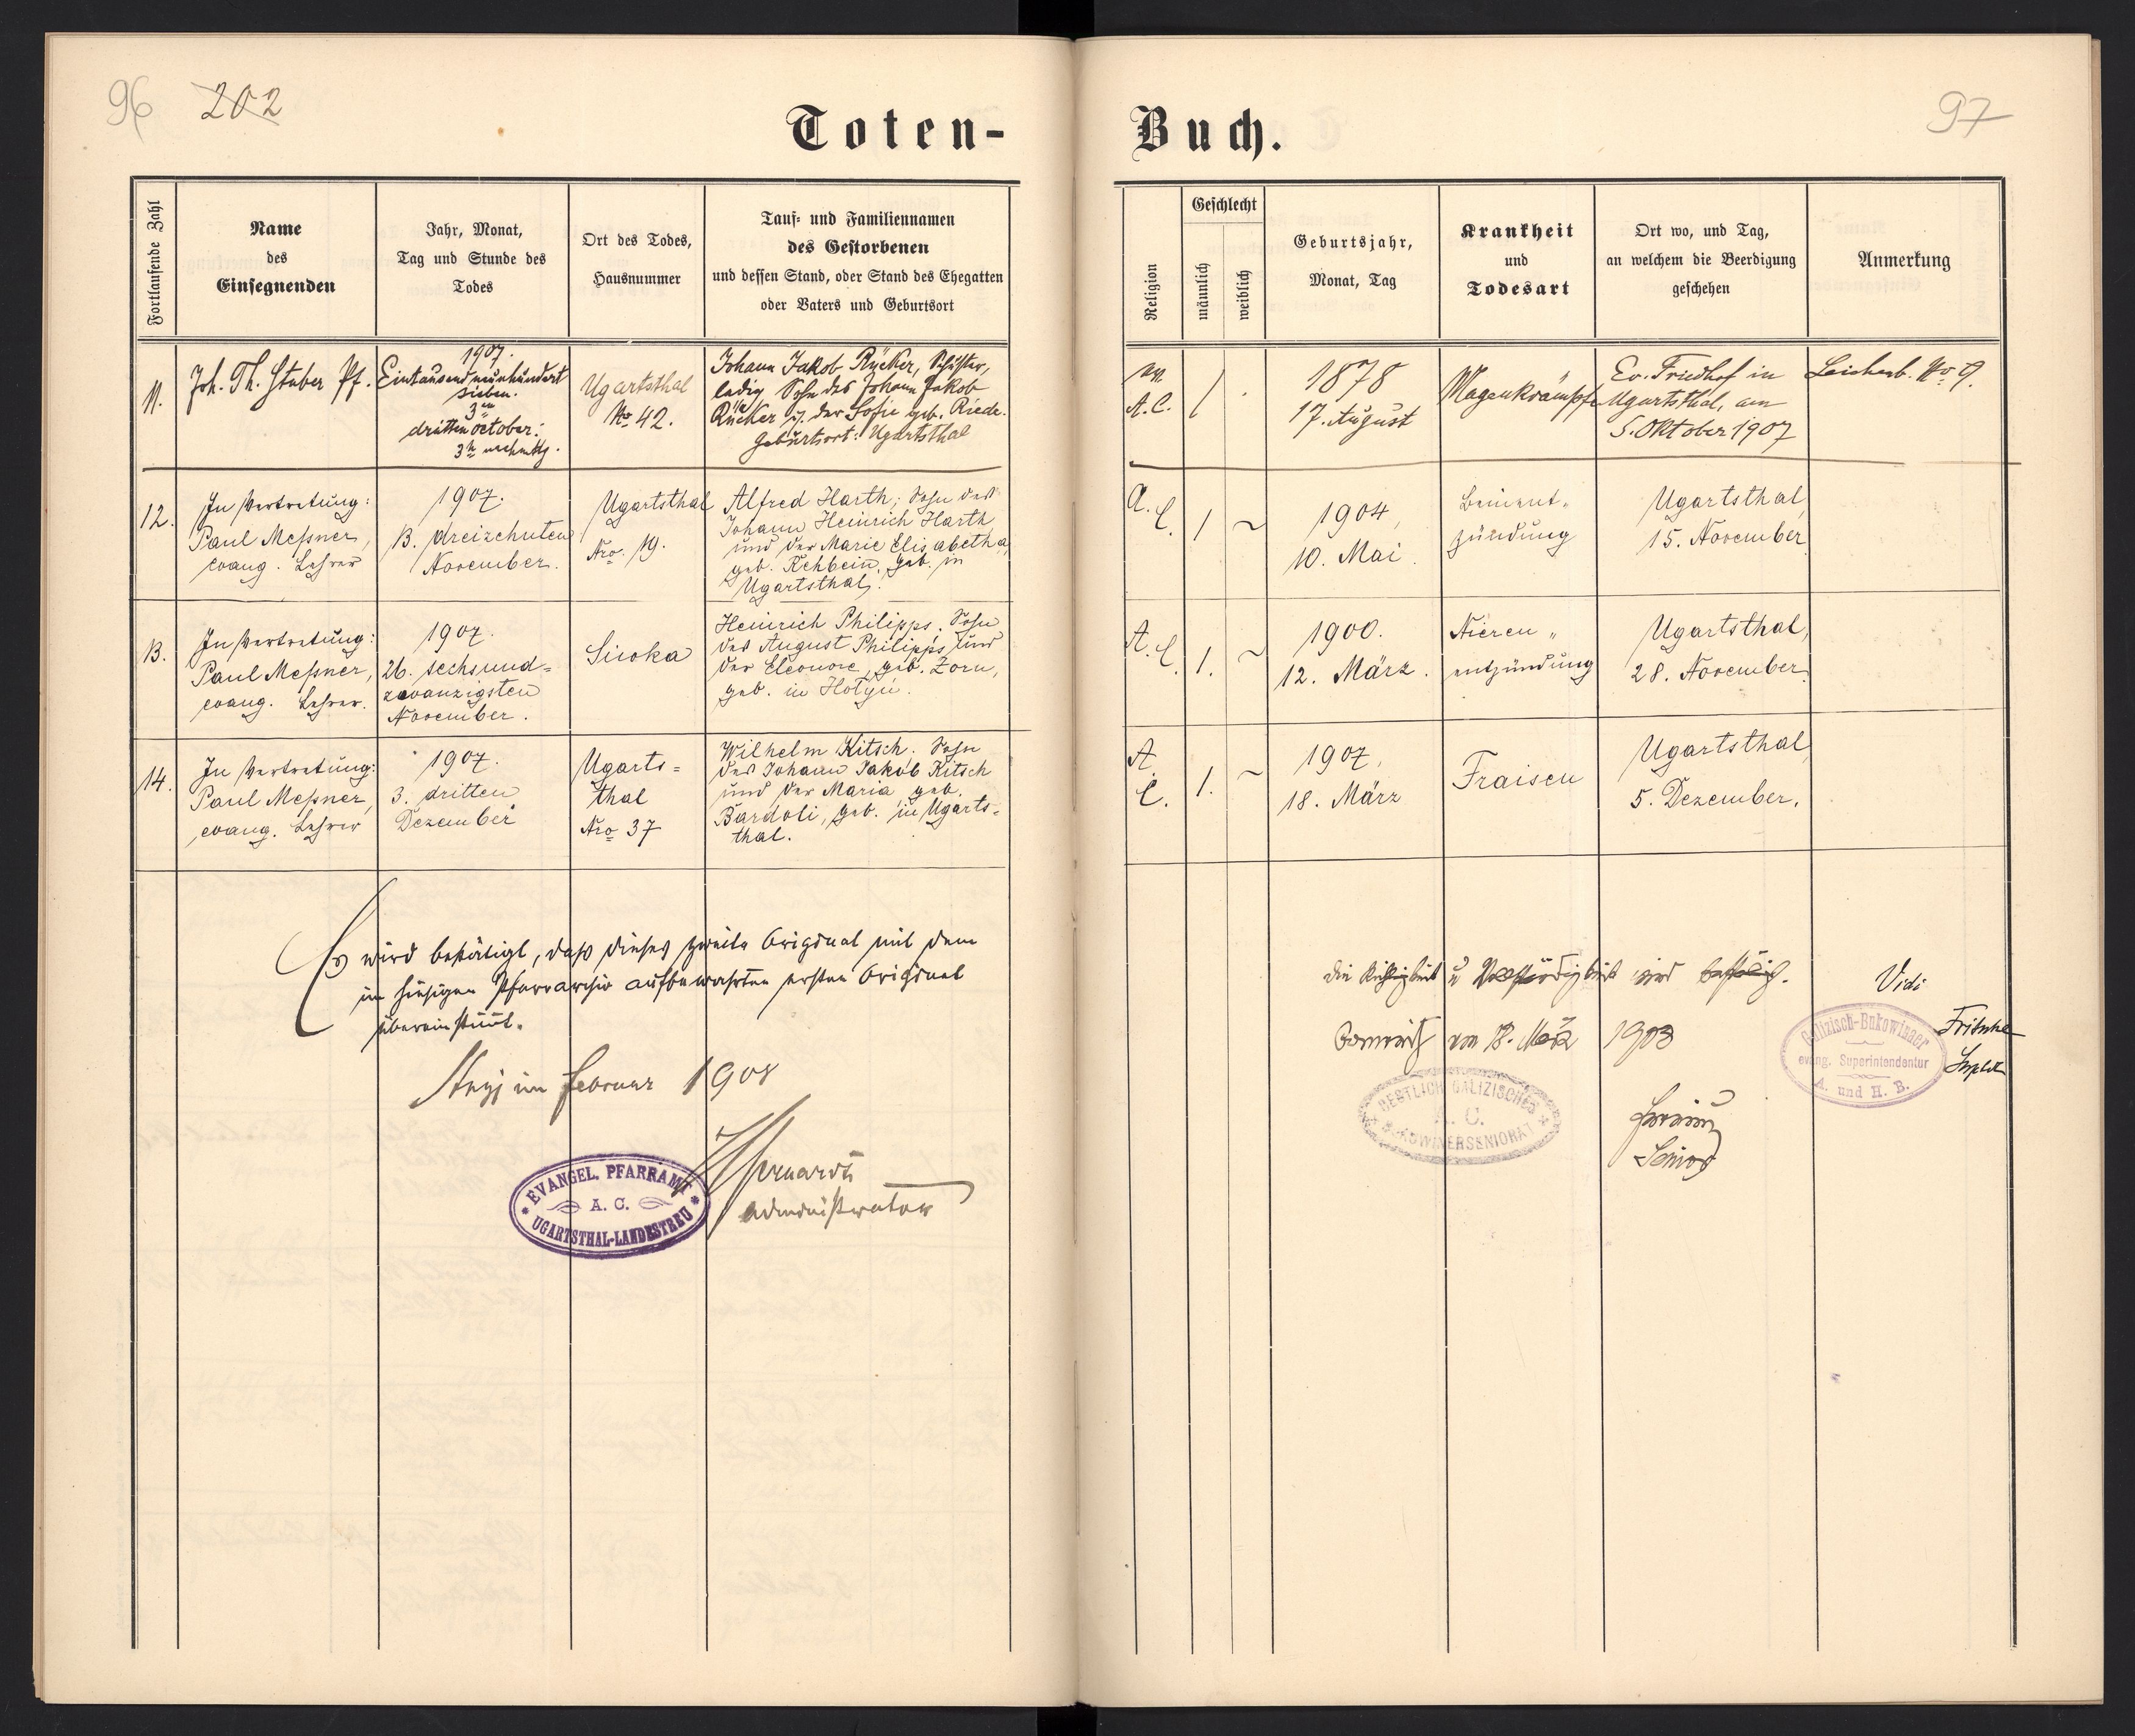 96 202
Toten-
Fortlaufende Zahl
Name
des
Einsegnenden
Jahr, Monat,
Tag und Stunde des
Todes
Ort des Todes,
Hausnummer
Tauf- und Familiennamen
des Gestorbenen
und dessen Stand, oder Stand des Ehegatten
oder Vaters und Geburtsort
11.
Joh. Th. Stuber Pf.
1907.
Eintausendneunhundert
sieben.
3ten
dritten October:
3h nachmittg.
Ugartsthal
No 42.
Johann Jakob Rücker, Schuster,
ledig, Sohn des Johann Jakob
Rücker u. der Sofie geb. Riede.
Geburtsort: Ugartsthal
12.
In Vertretung:
Paul Meßner,
evang. Lehrer
1907.
13. dreizehnten
November.
Ugartsthal
Nro. 19.
Alfred Harth; Sohn des
Johann Heinrich Harth
und der Marie Elisabetha,
geb. Rehbein, geb. in
Ugartsthal.
13.
In Vertretung:
Paul Meßner,
evang. Lehrer.
1907.
26. sechsund=
zwanzigsten
November.
Siwka
Heinrich Philipps. Sohn
des August Philipps und
der Eleonore, geb. Zorn,
geb. in Hołyń.
14.
In Vertretung:
Paul Meßner,
evang. Lehrer
1907.
3. dritten
Dezember
Ugarts=
thal
Nro 37
Wilhelm Kitsch. Sohn
des Johann Jakob Kitsch
und der Maria geb.
Bardoli, geb. in Ugarts=
thal.
Es wird bestätigt, daß dieses zweite Original mit dem
im hiesigen Pfarrarchiv aufbewahrten ersten Original
übereinstimmt.
Stryj im Februar 1908
Administrator
EVANGEL. PFARRAMT
A. C.
UGARTSTHAL-LANDESTREU
97
Buch.
Religion
Geschlecht
männlich
weiblich
Geburtsjahr,
Monat, Tag
Krankheit
und
Todesart
Ort wo, und Tag,
an welchem die Beerdigung
geschehen
Anmerkung
A. C.
1
1878
17. August
Magenkrämpfe
Ev. Friedhof in
Ugartsthal, am
5. Oktober 1907
Leichenb. No 9.
A. C.
1
~
1904,
10. Mai.
zündung
Ugartsthal,
15. November.
A. C.
1.
~
1900.
12. März.
Nieren "
entzündung
Ugartsthal,
28. November.
A. C.
1.
~
1907.
18. März
Fraisen
Ugartsthal,
5. Dezember.
Die Richtigkeit u. Vollständigkeit wird bestätigt.
am 18. März 1908
OESTLICH GALIZISCHES
A. C.
BUKOWINERSENIORAT
Senior
Vidi
Galizisch-Bukowinaer
evang. Superintendentur
A. und H. B.
Fritsche
Supdt